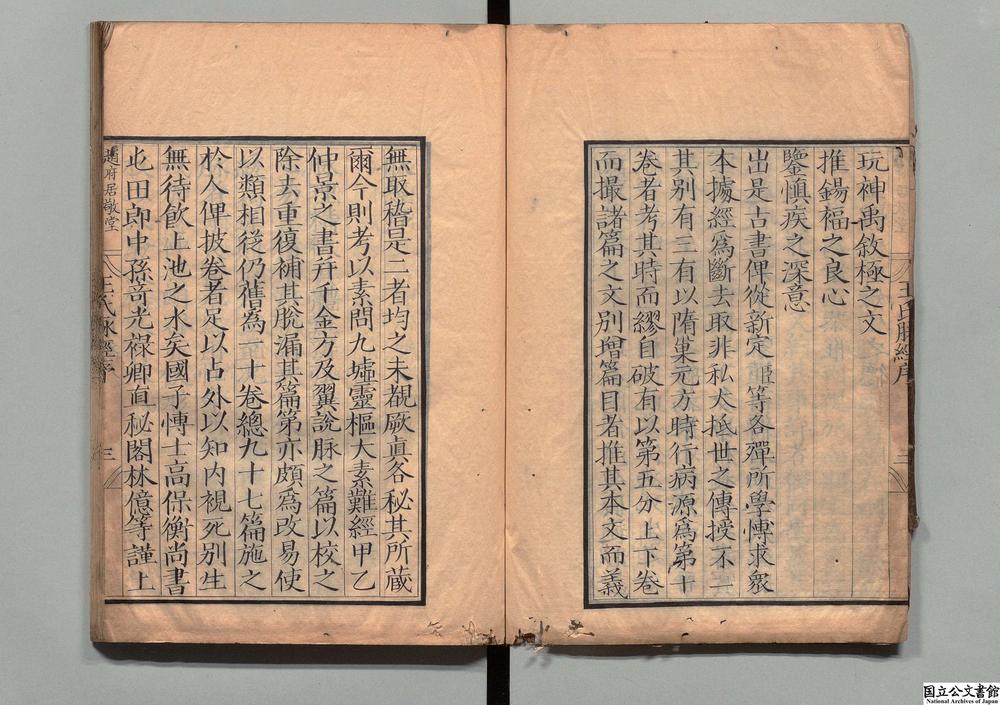 玩神禹敘極之文
推錫福之良心
鑒慎疾之深意
出是古書俾從新定臣等各殫所學博求眾
本據經為斷去取非私大抵世之傳授不一
其別有三有以隋巢元方時行病源為第十
卷者考其時而繆自破有以第五分上下卷
而撮諸篇之文別增篇目者推其本文而義
無取稽是二者均之未覩厥真各秘其所藏
爾今則考以素問九墟靈樞太素難經甲乙
仲景之書并千金方及翼說脉之篇以校之
除去重復補其脫漏其篇第亦頗為改易使
以類相從仍舊為一十卷總九十七篇施之
於人俾披卷者足以占外以知內視死別生
無待飲上池之水矣國子博士高保衡尚書
屯田郎中孫奇光祿卿直秘閣林億等謹上
王氏脉經序
三
趙府居敬堂
国立公文書館
National Archives of Japan